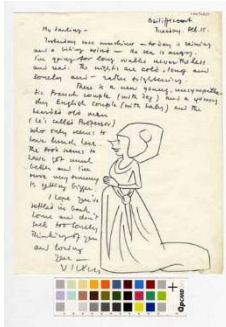 My darling -
Tuesday, Feb 15.
Yesterday was sunshine - today is raining
and a biting wind - the sea is angry.
I'm going for long walks nevertheless
and read. The nights are cold, long and
lonely and - rather frightening.
There is a new young, unsympathe-
tic French couple (with dog) and a young
shy English couple (with baby) and the
bearded old man
(he's called Professor)
who only seems to
have lunch here.
The food seems to
have got much
better and I'm
very
is getting bigger.
I hope you're
settled in back
home and don't
feel too lonely.
Thinking of you
and loving
you -